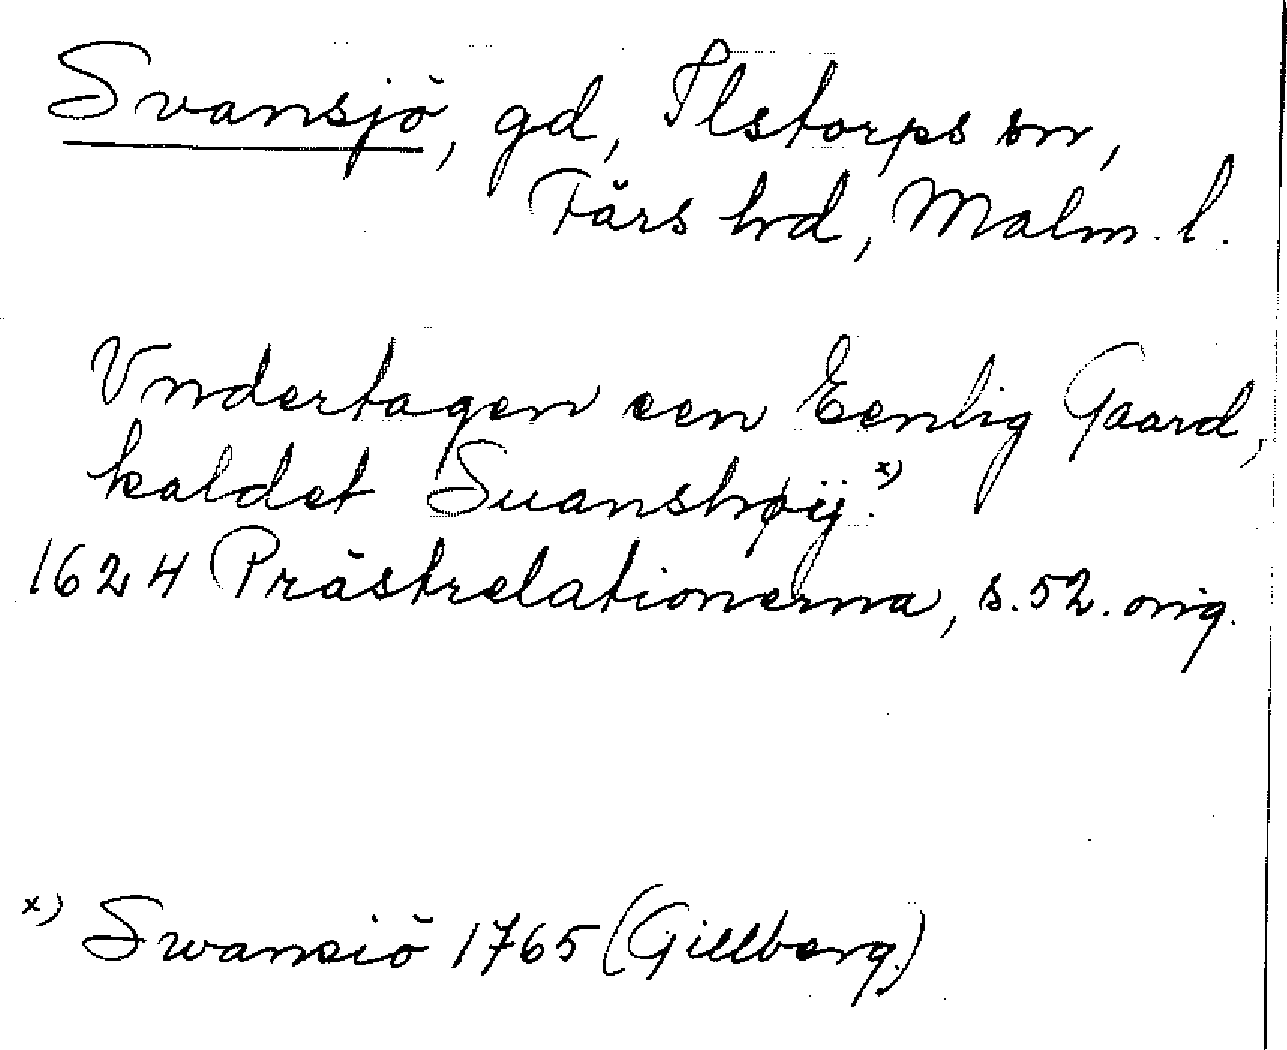 Svansjö, gd, Ilstorps sn,
Färs hd, Malm. l.
Vndertagen een Eenlig Gaard,
kaldet Suanshøÿ.x)
1624 Prästrelationerna, s. 52. orig.
x) Swansiö 1765 (Gillberg)